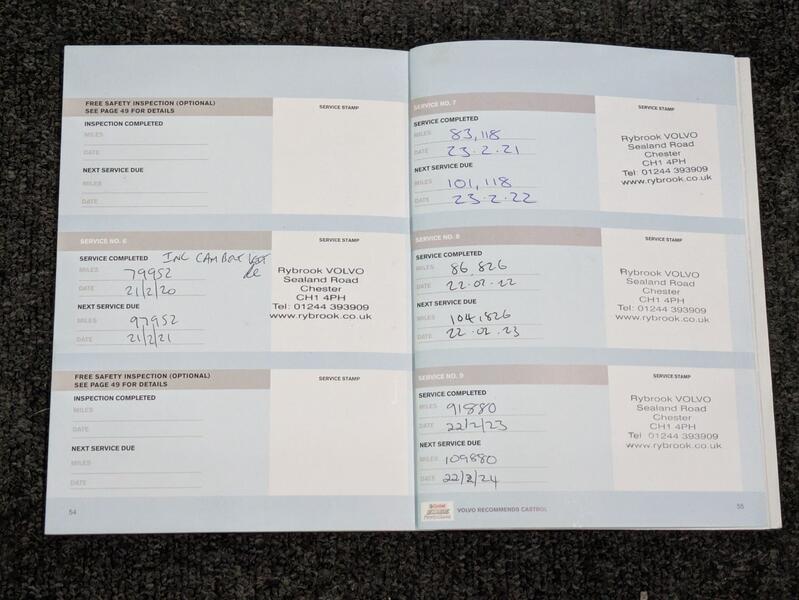 FREE SAFETY INSPECTION (OPTIONAL)
SEE PAGE 49 FOR DETAILS
SERVICE STAMP
INSPECTION COMPLETED
MILES
DATE
NEXT SERVICE DUE
MILES
DATE
SERVICE NO. 6
SERVICE STAMP
SERVICE COMPLETED INC CAMBELT
MILES 79952
DATE 21/2/20
NEXT SERVICE DUE
MILES 97952
DATE 21/2/21
Rybrook VOLVO
Sealand Road
Chester
CH1 4PH
Tel: 01244 393909
www.rybrook.co.uk
FREE SAFETY INSPECTION (OPTIONAL)
SEE PAGE 49 FOR DETAILS
SERVICE STAMP
INSPECTION COMPLETED
MILES
DATE
NEXT SERVICE DUE
MILES
DATE
54
SERVICE NO. 7
SERVICE STAMP
SERVICE COMPLETED
MILES 83,118
DATE 23.2.21
NEXT SERVICE DUE
MILES 101,118
DATE 23.2.22
Rybrook VOLVO
Sealand Road
Chester
CH1 4PH
Tel: 01244 393909
www.rybrook.co.uk
SERVICE NO. 8
SERVICE STAMP
SERVICE COMPLETED
MILES 86,826
DATE 22.02.22
NEXT SERVICE DUE
MILES 104,826
DATE 22.02.23
Rybrook VOLVO
Sealand Road
Chester
CH1 4PH
Tel: 01244 393909
www.rybrook.co.uk
SERVICE NO. 9
SERVICE STAMP
SERVICE COMPLETED
MILES 91880
DATE 22/2/23
NEXT SERVICE DUE
MILES 109880
DATE 22/2/24
Rybrook VOLVO
Sealand Road
Chester
CH1 4PH
Tel: 01244 393909
www.rybrook.co.uk
Castrol
VOLVO RECOMMENDS CASTROL
55